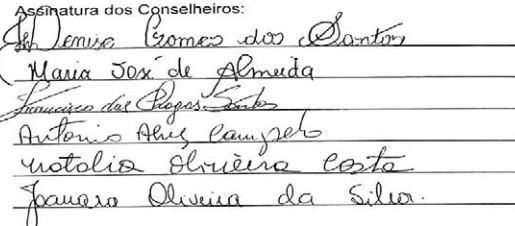 Assinatura dos Conselheiros:
Denise Gomes dos Santos
Maria José de Almeida
Francisco das Chagas Santos
Antonio Alves Campelo
Natalia Oliveira Costa
Joauara Oliveira da Silva.